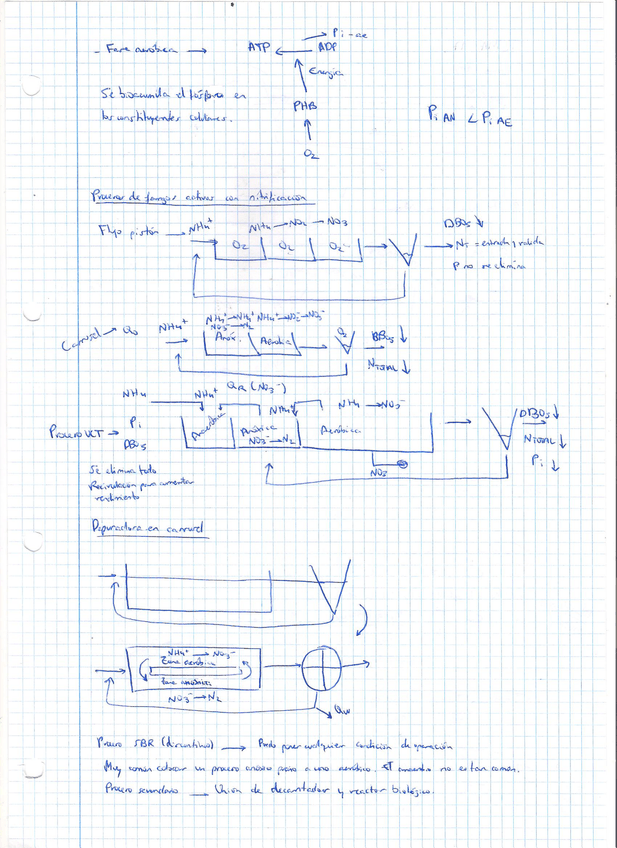 Pi-ae
- Fase aeróbica → ATP ← ADP
Energía
Se bioacumula el fósforo en
los constituyentes celulares.
PHB
Pi AN < Pi AE
O2
Procesos de fangos activos con nitrificación
Flujo pistón → NH4+
NH4 → NO2 → NO3
O2 O2 O2
DBO5 ↓
NT = entrada y salida
P no se elimina
Carrusel → Q0 NH4+
NH4+ → NH4+ NH4+ → NO2- → NO3-
NO3- → N2
Anóx. Aerobia
O2
DBO5 ↓
NTOTAL ↓
NH4 NH4+ QR (NO3-)
NH4+ NH4 → NO3-
Proceso UCT → Pi
DBO5
Anaerobia
Anóxica
NO3- → N2
Aeróbica
NO3
DBO5 ↓
NTOTAL ↓
Pi ↓
Se elimina todo
Recirculación para aumentar
rendimiento
Depuradora en carrusel
NH4+ → NO3-
Zona aeróbica
Zona anóxica
NO3- → N2
QW
Proceso SBR (discontinuo) → Puedo poner cualquier condición de operación
Muy común colocar un proceso anóxico previo a uno aeróbico. El anaerobio no es tan común.
Proceso secundario Unión de decantador y reactor biológico.